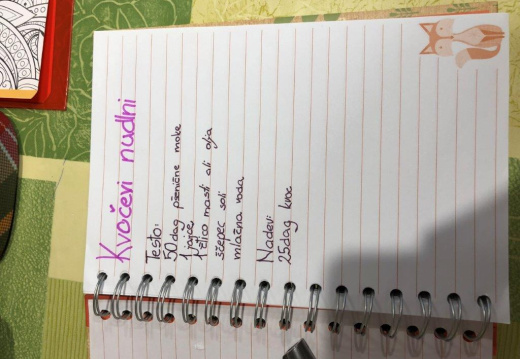 Kvočevi nudlni
Testo:
50 dag pšenične moke
1 jajce
1 žlico masti ali olja
ščepec soli
mlačna voda
Nadev:
25 dag kvoc